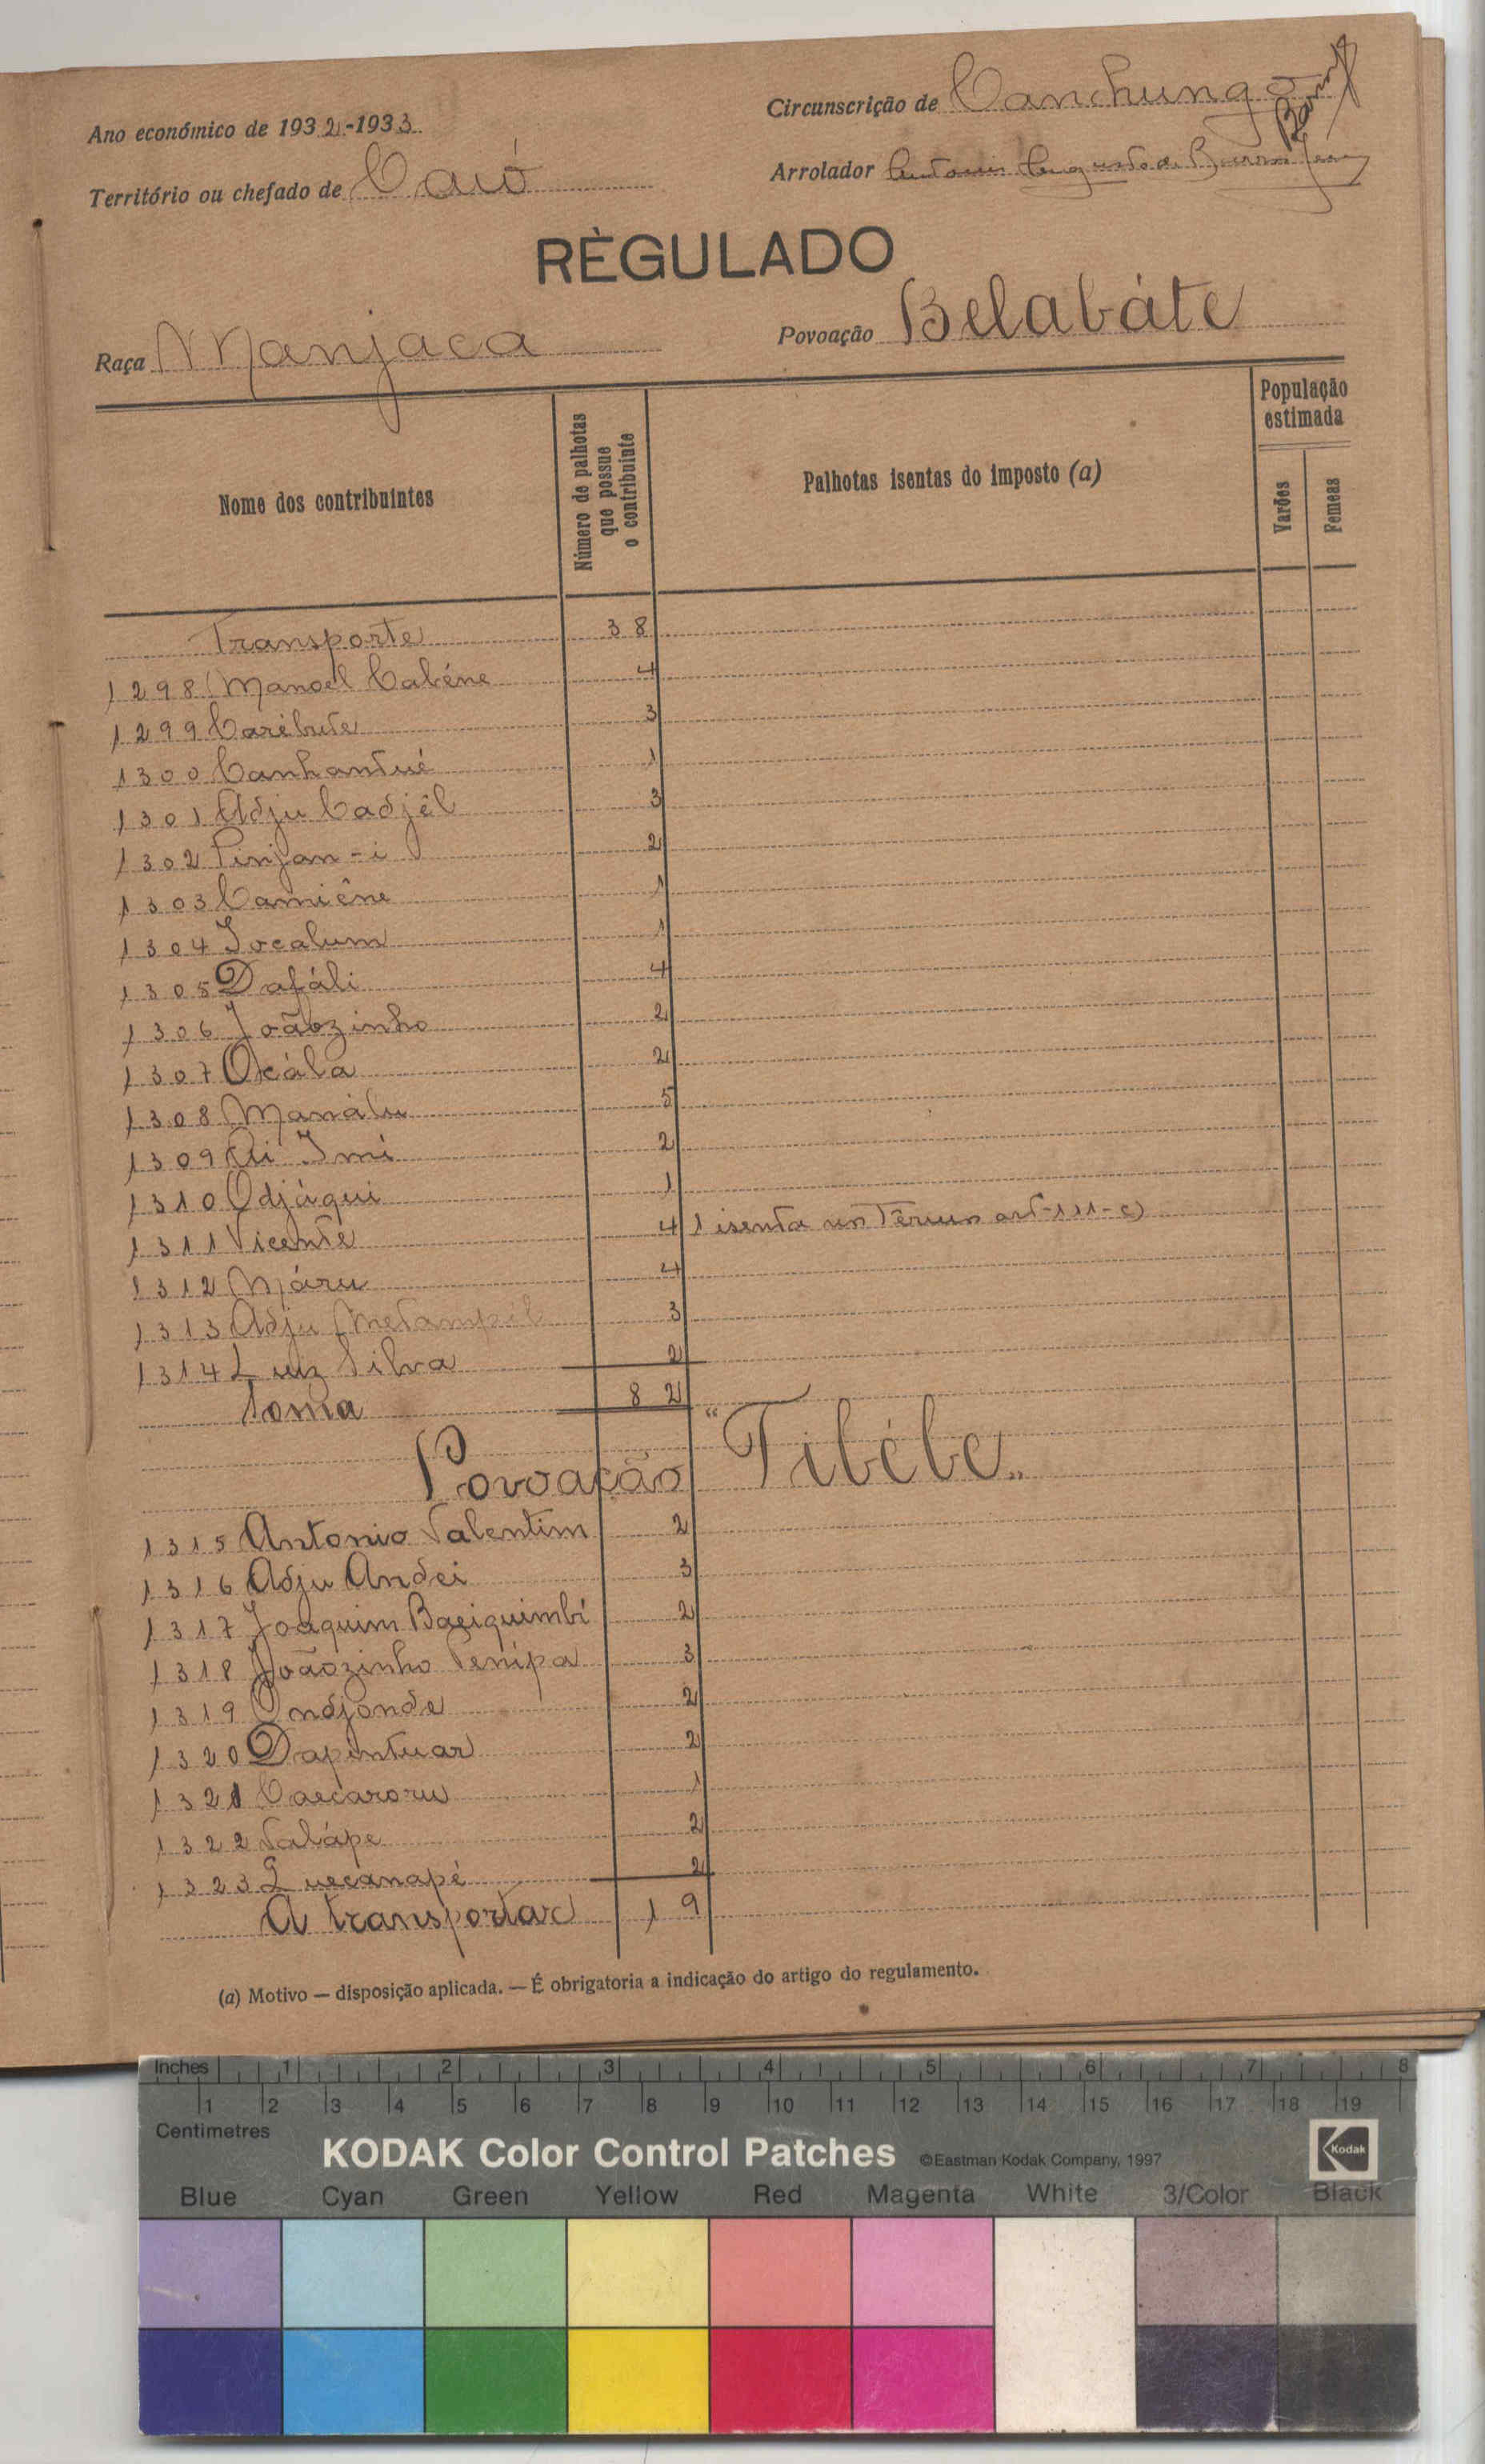 Ano económico de 1932-1933
Circunscrição de Canchungo
Território ou chefado de Caió
Arrolador Antonio Augusto de Barros
RÈGULADO
Raça Manjaca
Povoação Belabáte
Nome dos contribuintes
Número de palhotas que possue o contribuinte
Palhotas isentas do imposto (a)
População estimada
Varões
Femeas
Transporte 38
1298 Manoel Cabéne 4
1299 Caribute 3
1300 Canhantué 1
1301 Adju Cadjêl 3
1302 Pinjan-i 2
1303 Camiêne 1
1304 Jocalum 1
1305 Dafáli 4
1306 Joãozinho 2
1307 Ocála 2
1308 Manálu 5
1309 Ai Imi 2
1310 Odjáqui 1
1311 Vicente 4 1 isenta art-111-c)
1312 Máru 4
1313 Adju Metampil 3
1314 Luiz Silva 2
Soma 82
Povoação "Tibébe"
1315 Antonio Valentim 2
1316 Adju Andei 3
1317 Joaquim 2
1318 Joãozinho Penipa 3
1319 Ondjonde 2
1320 Dapintuar 2
1321 1
1322 Valápe 2
1323 2
A transportar 19
(a) Motivo — disposição aplicada. — É obrigatoria a indicação do artigo do regulamento.
Inches 1 2 3 4 5 6 7 8
1 2 3 4 5 6 7 8 9 10 11 12 13 14 15 16 17 18 19
Centimetres
KODAK Color Control Patches ©Eastman Kodak Company, 1997
Kodak
Blue Cyan Green Yellow Red Magenta White 3/Color Black